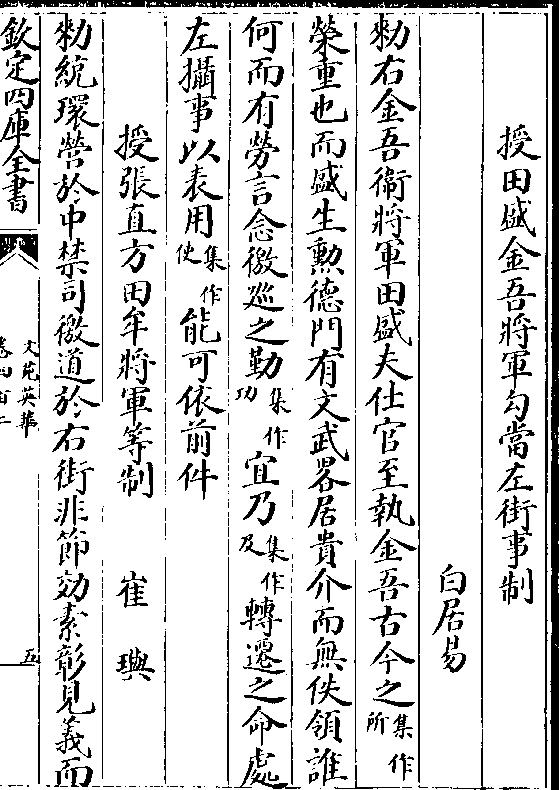 授田盛金吾將軍勾當左街事制
白居易
勅右金吾衛將軍田盛夫仕官至執金吾古今之集作所
榮重也而盛生勲德門有文武畧居貴介而無佚領誰
何而有勞言念徼廵之勤集作功宜乃集作及轉遷之命處
左攝事以表用集作使能可依前件
授張直方田牟將軍等制 崔璵
勅統環營於中禁司徼道於右街非節効素彰見義而
欽定四庫全書
文苑英華
卷四百二
五